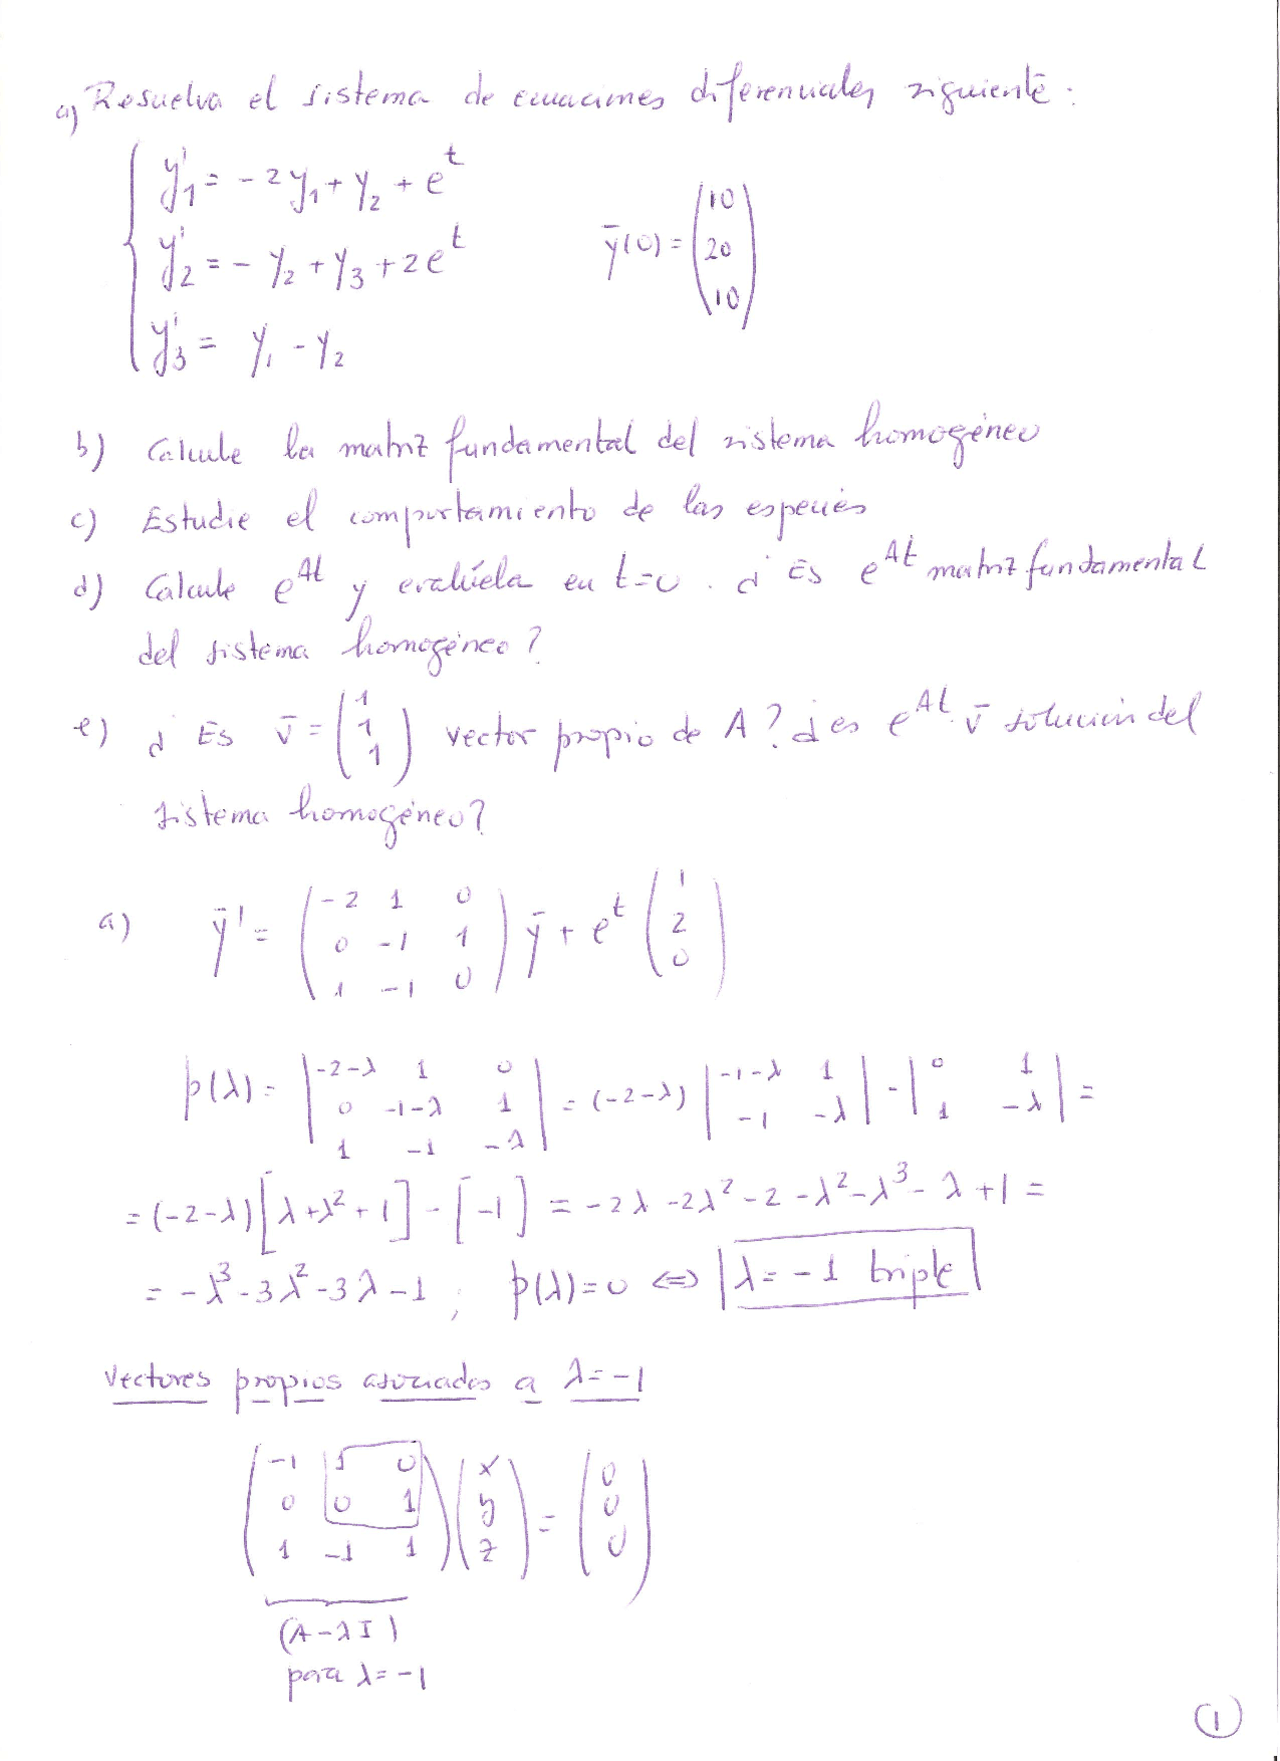 a) Resuelva el sistema de ecuaciones diferenciales siguiente:
y'₁ = -2y₁ + y₂ + e^t
y'₂ = - y₂ + y₃ + 2e^t ȳ(0) = (10 20 10)
y'₃ = y₁ - y₂
b) Calcule la matriz fundamental del sistema homogéneo
c) Estudie el comportamiento de las especies
d) Calcule e^At y evalúela en t=0. ¿Es e^At matriz fundamental
del sistema homogéneo?
e) ¿Es v̄ = (1 1 1) vector propio de A? ¿es e^At · v̄ solución del
sistema homogéneo?
a) ȳ' = (-2 1 0
0 -1 1
1 -1 0) ȳ + e^t (1 2 0)
p(λ) = |-2-λ 1 0
0 -1-λ 1
1 -1 -λ| = (-2-λ) |-1-λ 1
-1 -λ| - |0 1
1 -λ| =
= (-2-λ)[λ+λ²+1] - [-1] = -2λ -2λ² -2 -λ² -λ³ - λ +1 =
= -λ³ -3λ² -3λ -1 ; p(λ)=0 ⇔ λ = -1 triple
Vectores propios asociados a λ = -1
(-1 1 0
0 0 1
1 -1 1) (x y z) = (0 0 0)
(A-λI)
para λ = -1
1